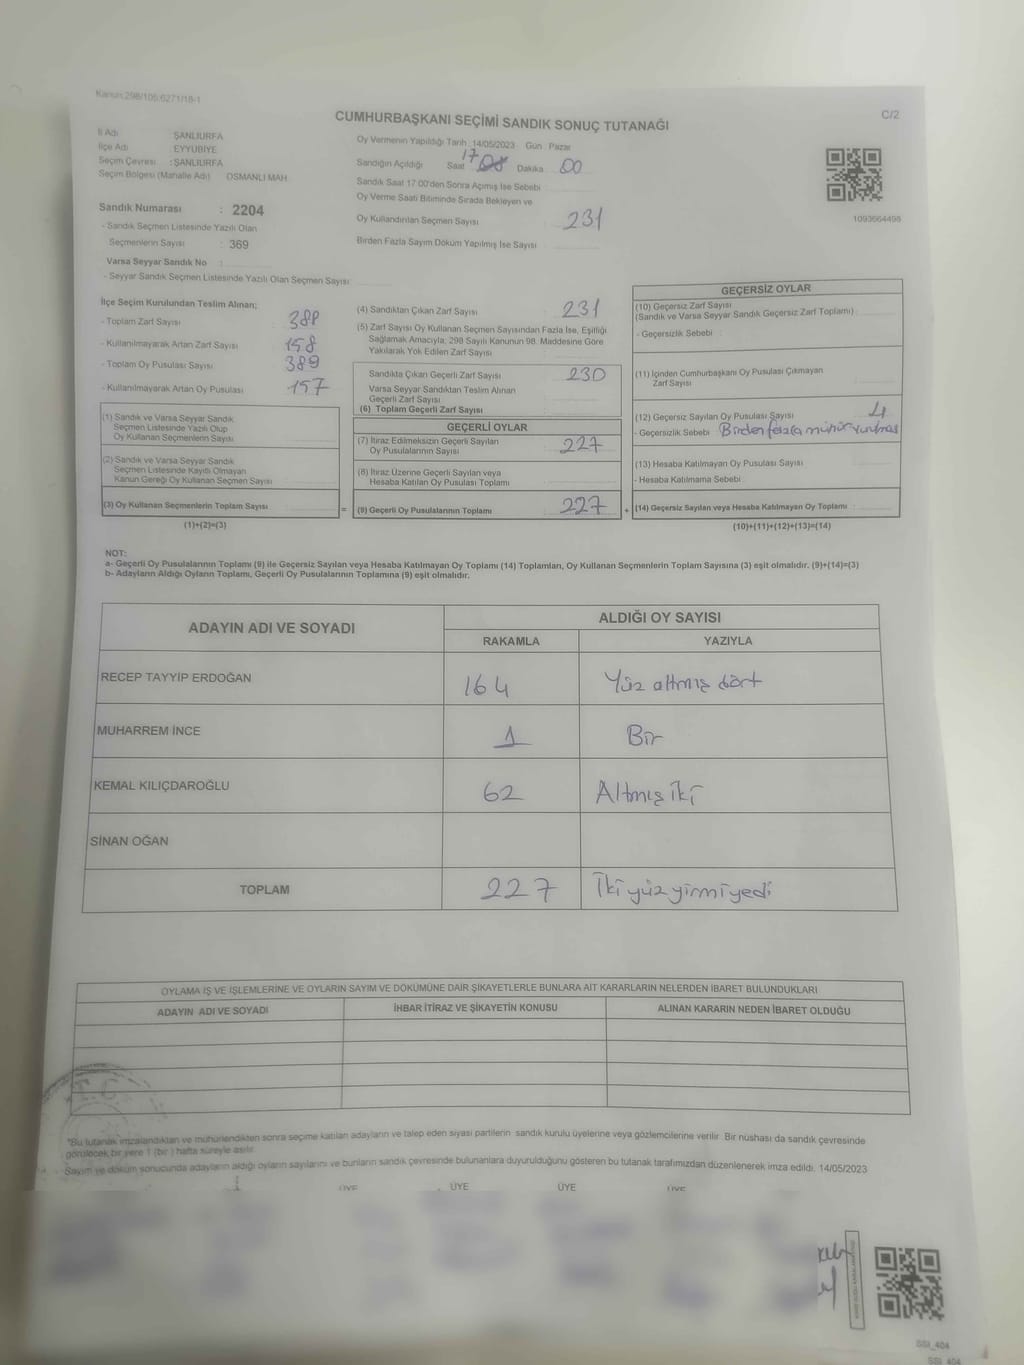 Kanun:298/106;6271/18-1
CUMHURBAŞKANI SEÇİMİ SANDIK SONUÇ TUTANAĞI
C/2
İl Adı : ŞANLIURFA
İlçe Adı : EYYUBİYE
Seçim Çevresi : ŞANLIURFA
Seçim Bölgesi (Mahalle Adı) OSMANLI MAH.
Sandık Numarası : 2204
- Sandık Seçmen Listesinde Yazılı Olan
Seçmenlerin Sayısı : 369
Varsa Seyyar Sandık No :
- Seyyar Sandık Seçmen Listesinde Yazılı Olan Seçmen Sayısı
Oy Vermenin Yapıldığı Tarih :14/05/2023 Gün : Pazar
Sandığın Açıldığı Saat 17 Dakika 00
Sandık Saat 17:00'den Sonra Açmış İse Sebebi
Oy Verme Saati Bitiminde Sırada Bekleyen ve
Oy Kullandırılan Seçmen Sayısı 231
Birden Fazla Sayım Döküm Yapılmış İse Sayısı
1093664498
İlçe Seçim Kurulundan Teslim Alınan;
- Toplam Zarf Sayısı
- Kullanılmayarak Artan Zarf Sayısı 158
- Toplam Oy Pusulası Sayısı 389
- Kullanılmayarak Artan Oy Pusulası 157
(1) Sandık ve Varsa Seyyar Sandık
Seçmen Listesinde Yazılı Olup
Oy Kullanan Seçmenlerin Sayısı
(2) Sandık ve Varsa Seyyar Sandık
Seçmen Listesinde Kayıtlı Olmayan
Kanun Gereği Oy Kullanan Seçmen Sayısı
(3) Oy Kullanan Seçmenlerin Toplam Sayısı =
(1)+(2)=(3)
(4) Sandıktan Çıkan Zarf Sayısı 231
(5) Zarf Sayısı Oy Kullanan Seçmen Sayısından Fazla İse, Eşitliği
Sağlamak Amacıyla, 298 Sayılı Kanunun 98. Maddesine Göre
Yakılarak Yok Edilen Zarf Sayısı
Sandıkta Çıkan Geçerli Zarf Sayısı 230
Varsa Seyyar Sandıktan Teslim Alınan
Geçerli Zarf Sayısı
(6) Toplam Geçerli Zarf Sayısı
GEÇERLİ OYLAR
(7) İtiraz Edilmeksizin Geçerli Sayılan
Oy Pusulalarının Sayısı 227
(8) İtiraz Üzerine Geçerli Sayılan veya
Hesaba Katılan Oy Pusulası Toplamı
(9) Geçerli Oy Pusulalarının Toplamı 227 +
GEÇERSİZ OYLAR
(10) Geçersiz Zarf Sayısı
(Sandık ve Varsa Seyyar Sandık Geçersiz Zarf Toplamı)
- Geçersizlik Sebebi :
(11) İçinden Cumhurbaşkanı Oy Pusulası Çıkmayan
Zarf Sayısı
(12) Geçersiz Sayılan Oy Pusulası Sayısı 4
- Geçersizlik Sebebi : Birden fazla mühür vurulması
(13) Hesaba Katılmayan Oy Pusulası Sayısı
- Hesaba Katılmama Sebebi :
(14) Geçersiz Sayılan veya Hesaba Katılmayan Oy Toplamı :
(10)+(11)+(12)+(13)=(14)
NOT:
a- Geçerli Oy Pusulalarının Toplamı (9) ile Geçersiz Sayılan veya Hesaba Katılmayan Oy Toplamı (14) Toplamları, Oy Kullanan Seçmenlerin Toplam Sayısına (3) eşit olmalıdır. (9)+(14)=(3)
b- Adayların Aldığı Oyların Toplamı, Geçerli Oy Pusulalarının Toplamına (9) eşit olmalıdır.
ADAYIN ADI VE SOYADI
ALDIĞI OY SAYISI
RAKAMLA YAZIYLA
RECEP TAYYİP ERDOĞAN 164 Yüz altmış dört
MUHARREM İNCE 1 Bir
KEMAL KILIÇDAROĞLU 62 Altmış iki
SİNAN OĞAN
TOPLAM 227 İki yüz yirmi yedi
OYLAMA İŞ VE İŞLEMLERİNE VE OYLARIN SAYIM VE DÖKÜMÜNE DAİR ŞİKAYETLERLE BUNLARA AİT KARARLARIN NELERDEN İBARET BULUNDUKLARI
ADAYIN ADI VE SOYADI İHBAR İTİRAZ VE ŞİKAYETİN KONUSU ALINAN KARARIN NEDEN İBARET OLDUĞU
*Bu tutanak imzalandıktan ve mühürlendikten sonra seçime katılan adayların ve talep eden siyasi partilerin sandık kurulu üyelerine veya gözlemcilerine verilir. Bir nüshası da sandık çevresinde
görülecek bir yere 1 (bir ) hafta süreyle asılır.
Sayım ve döküm sonucunda adayların aldığı oyların sayılarını ve bunların sandık çevresinde bulunanlara duyurulduğunu gösteren bu tutanak tarafımızdan düzenlenerek imza edildi. 14/05/2023
ÜYE ÜYE ÜYE ÜYE
SSI_404
SSI_404